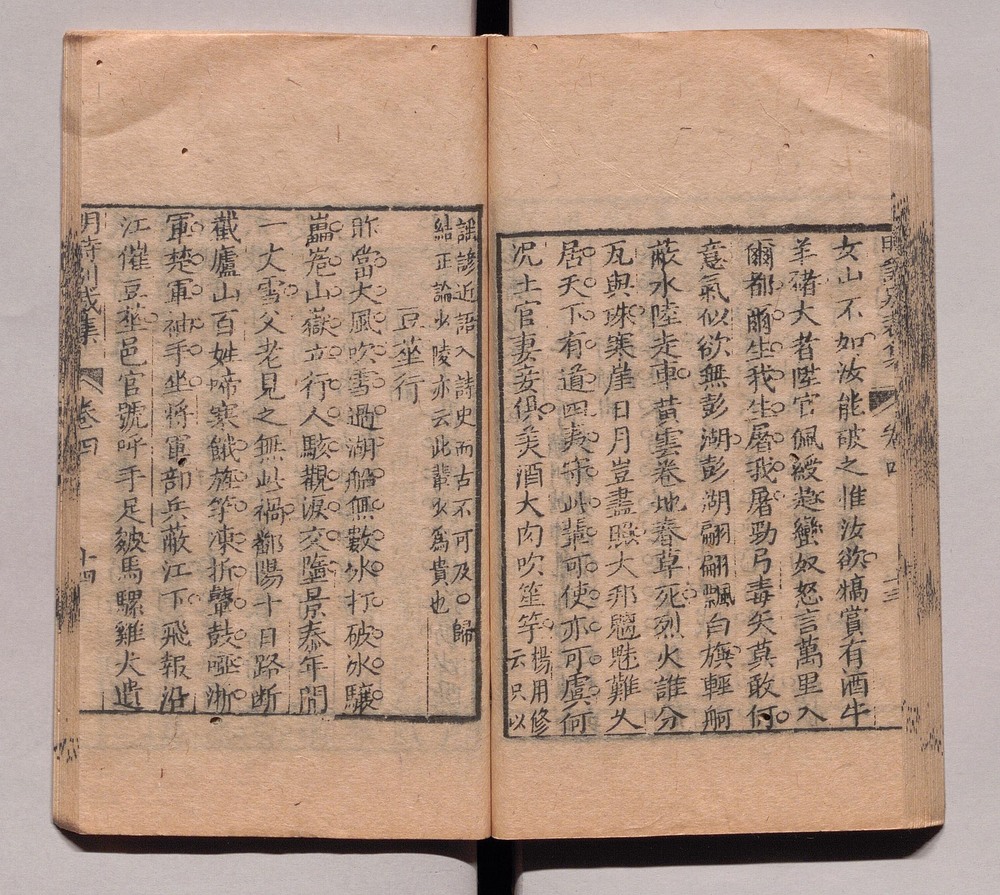 明詩別裁集 卷四 十三
女山不如汝能破之惟汝欲犒賞有酒牛
羊猪大者陞官佩綬趨蠻奴怒言萬里入
爾都爾生我生屠我屠勁弓毒矢莫敢何
意氣似欲無彭湖彭湖翩翩飄白旗輕舸
蔽水陸走車黃雲卷地春草死烈火誰分
瓦與珠寒崖日月豈盡照大邦魑魅難久
居天下有道四夷守此輩可使亦可虞何
况土官妻妾俱美酒大肉吹笙竽楊用修
云只以
謡諺近語入詩史而古不可及○歸
結正論少陵亦云此輩少爲貴也
豆莝行
昨當大風吹雪過湖船無數冰打破冰驤
卷山嶽立行人駭觀淚交墮景泰年間
一丈雪父老見之無此禍鄱陽十日路断
截廬山百姓啼寒餓旌竿凍折鼙鼓啞浙
軍楚軍袖手坐將軍部兵蔽江下飛報沿
江催豆莝邑官號呼手足皴馬騾雞犬遺
明詩別裁集 卷四 十四